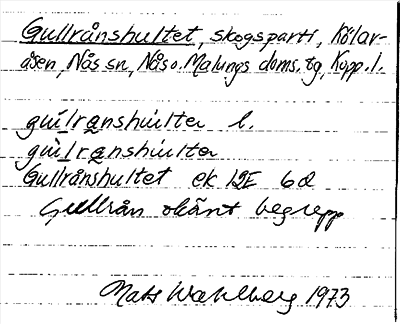 Gullrånshultet, skogsparti, Kölar-
åsen, Nås sn, Nås o. Malungs doms. tg, Kopp. l.
gulranshulter l.
gulranshulter
Gullrånshultet ek 12E 6d
Gullrån okänt begrepp
Mats Wahlberg 1973